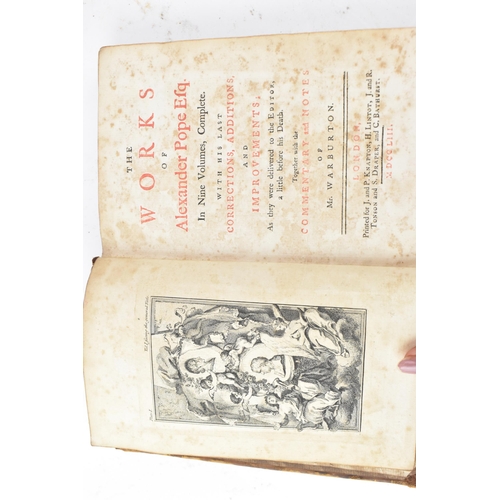 THE
WORKS
OF
Alexander Pope Esq.
In Nine Volumes, Complete.
WITH HIS LAST
CORRECTIONS, ADDITIONS,
AND
IMPROVEMENTS;
As they were delivered to the EDITOR,
a little before his Death:
Together with the
COMMENTARY and NOTES
OF
Mr. WARBURTON.
LONDON,
Printed for J. and P. KNAPTON, H. LINTOT, J. and R.
TONSON and S. DRAPER, and C. BATHURST.
MDCCLIII.